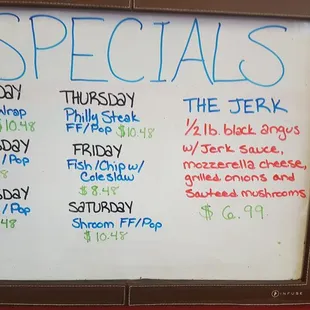 SPECIALS
DAY
Wrap
$10.48
DAY
/Pop
DAY
/Pop
48
THURSDAY
Philly Steak
FF/Pop $10.48
FRIDAY
Fish/Chip w/
Coleslaw
$8.48
SATURDAY
Shroom FF/Pop
$10.48
THE JERK
1/2 lb. black angus
w/ Jerk sauce,
mozzerella cheese,
grilled onions and
sauteed mushrooms
$6.99
INFUSE